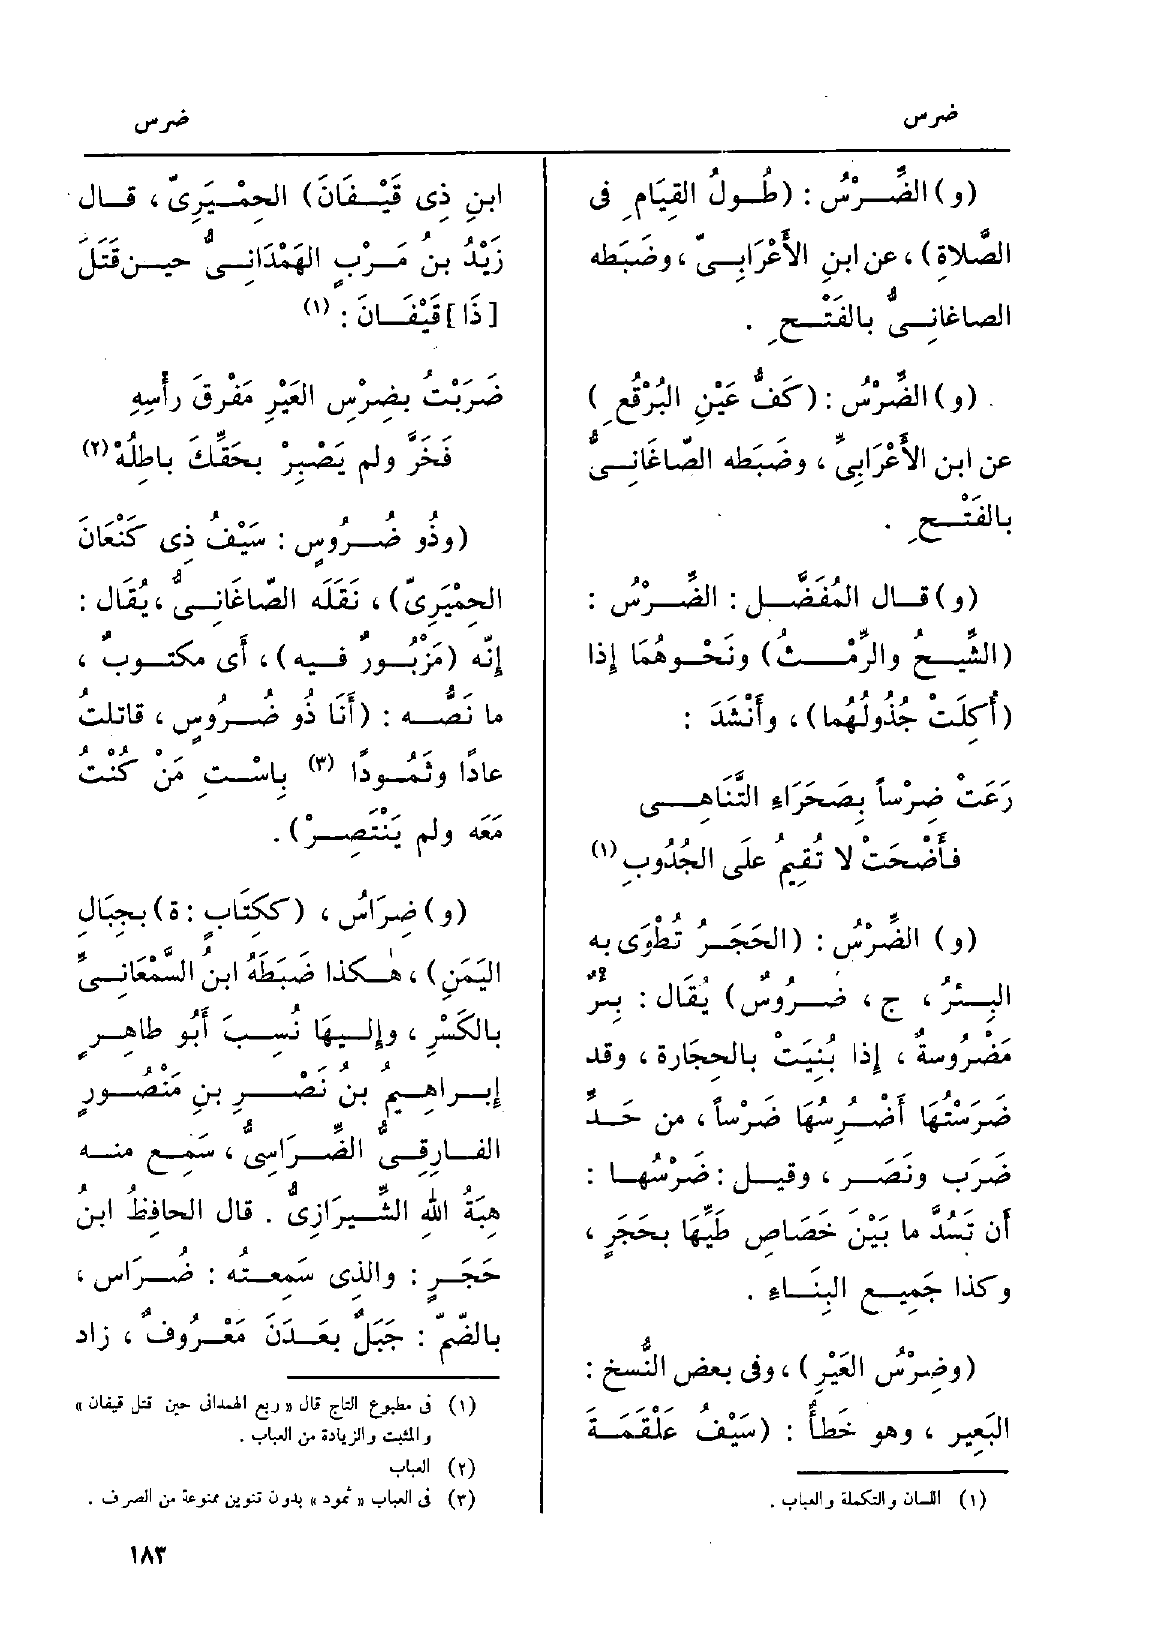 ضرس
ضرس
(و) الضِّرْسُ : (طُولُ القِيَامِ فى
الصَّلاةِ) ، عن ابنِ الأَعْرَابِىّ ، وضَبَطه
الصاغانِىُّ بالفَتْحِ .
(و) الضِّرْسُ : (كَفُّ عَيْنِ البُرْقُعِ)
عن ابن الأَعْرَابِىِّ ، وضَبَطه الصّاغَانِىُّ
بالفَتْحِ .
(و) قال المُفَضَّل : الضِّرْسُ :
(الشِّيحُ والرِّمْثُ) ونَحْوهُمَا إِذا
(أُكِلَتْ جُذُولُهُما) ، وأَنْشَدَ :
رَعَتْ ضِرْساً بِصَحَرَاءِ التَّنَاهِى
فأَضْحَتْ لا تُقِيمُ علَى الجُدُوبِ (١)
(و) الضِّرْسُ : (الحَجَرُ تُطْوَى به
البِئرُ ، ج ، ضُرُوسٌ) يُقَال : بِئرٌ
مَضْرُوسةٌ ، إِذا بُنِيَتْ بالحِجَارة ، وقد
ضَرَسْتُهَا أَضْرُسُهَا ضَرْساً ، من حَدِّ
ضَرَب ونَصَر ، وقيل : ضَرْسُها :
أَن تَسُدَّ ما بَيْنَ خَصَاصِ طَيِّهَا بحَجَرٍ ،
وكذا جَمِيع البِنَاءِ .
(وضِرْسُ العَيْرِ) ، وفى بعض النُّسخ :
البَعِير ، وهو خَطأٌ : (سَيْفُ عَلْقَمَةَ
(١) اللسان والتكملة والعباب .
ابنِ ذِى قَيْفَانَ) الحِمْيَرِىّ ، قال
زَيْدُ بنُ مَرْبٍ الهَمْدَانِىُّ حين قَتَلَ
[ ذَا ] قَيْفَانَ : (١)
ضَرَبْتُ بضِرْسِ العَيْرِ مَفْرِقَ رَأْسِهِ
فَخَرَّ ولم يَصْبِرْ بحَقِّكَ باطِلُهْ (٢)
(وذُو ضُرُوسٍ : سَيْفُ ذِى كَنْعَانَ
الحِمْيَرِىّ) ، نَقَلَه الصّاغَانِىُّ ، يُقَال :
إِنّه (مَزْبُورٌ فيه) ، أَى مكتوبٌ ،
ما نَصُّه : (أَنَا ذُو ضُرُوسٍ ، قاتلتُ
عادًا وثَمُودًا (٣) بِاسْتِ مَنْ كُنْتُ
مَعَه ولم يَنْتَصِرْ) .
(و) ضِرَاسٌ ، (ككِتَابٍ : ة) بجِبَالِ
اليَمَنِ) ، هٰكذا ضَبَطَهُ ابنُ السَّمْعَانِىِّ
بالكَسْرِ ، وإِليهَا نُسِبَ أَبُو طاهِرٍ
إِبراهِيمُ بنُ نَصْرِ بنِ مَنْصُورٍ
الفَارِقِىُّ الضِّرَاسِىُّ ، سَمِع منه
هِبَةُ اللهِ الشِّيرَازِىُّ . قال الحافظُ ابنُ
حَجَرٍ : والذِى سَمِعتُه : ضُراس ،
بالضّمِّ : جَبَلٌ بعَدَنَ مَعْرُوفٌ ، زاد
(١) فى مطبوع التاج قال « ربع الهمدانى حين قتل قيفان »
والمثبت والزيادة من العباب .
(٢) العباب
(٣) فى العباب « ثمود » بدون تنوين ممنوعة من الصرف .
١٨٣